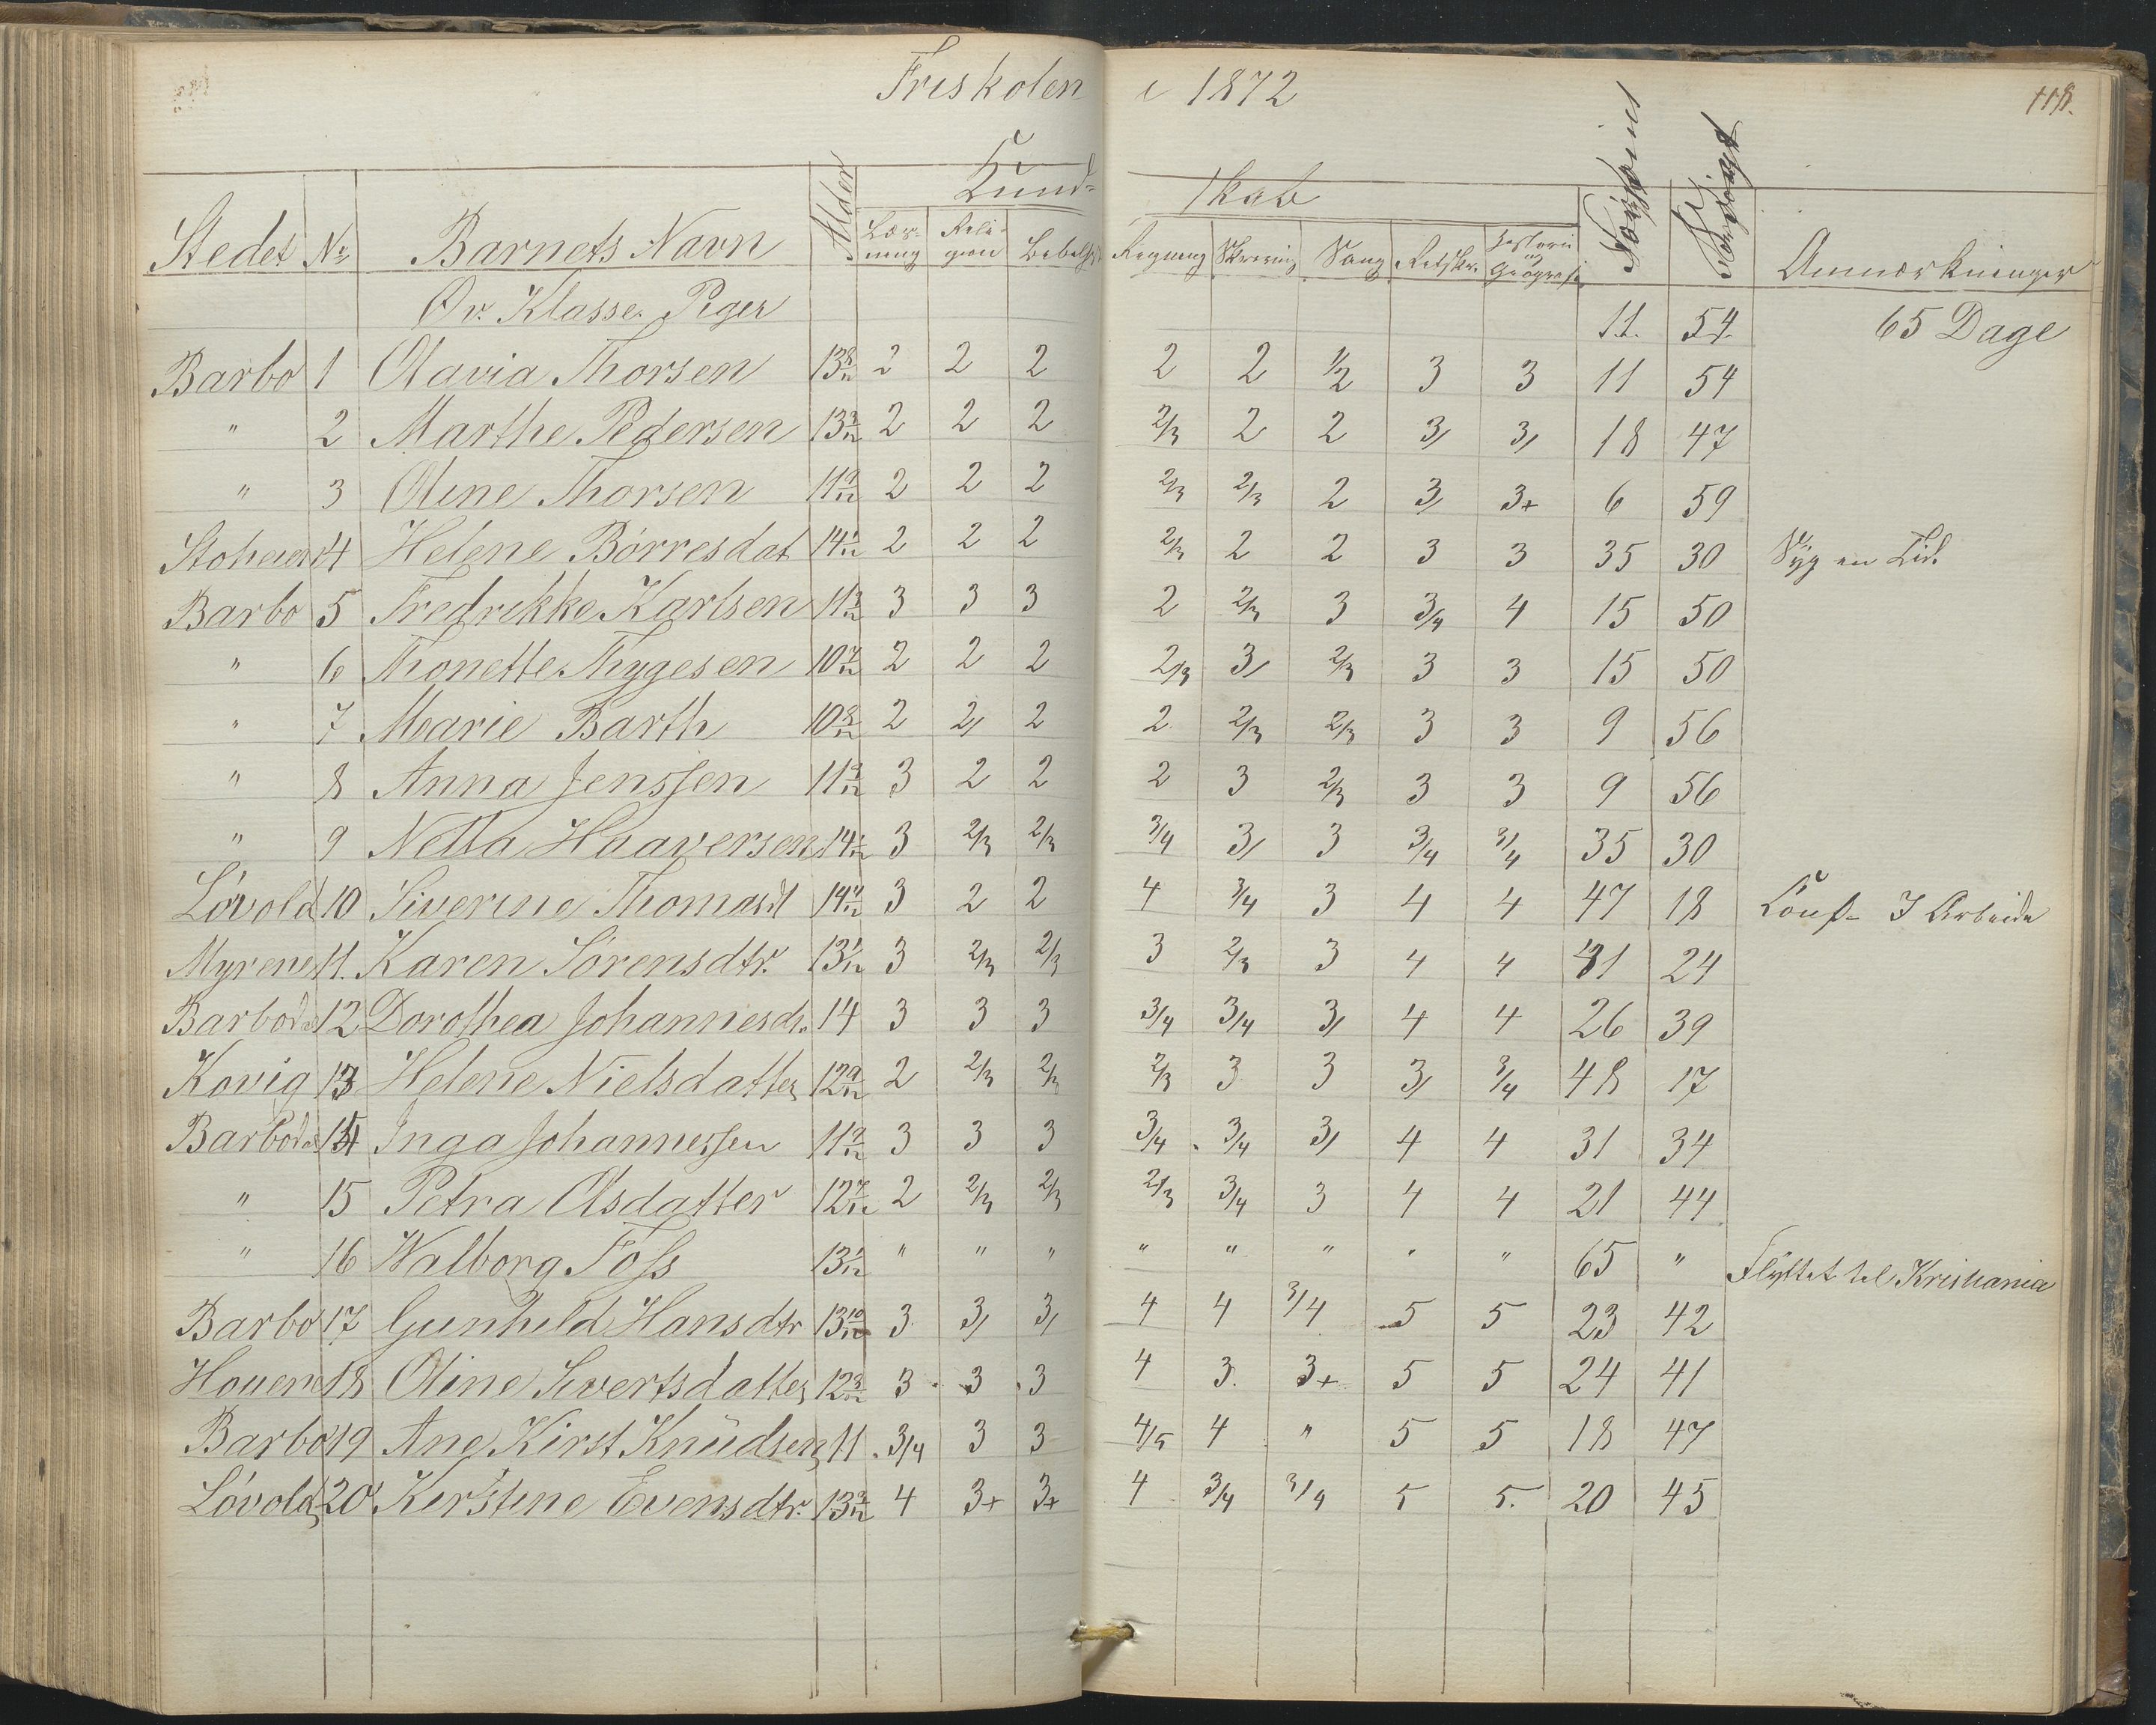 Friskolen i 1872
118.
Kund- skab
Stedet No Barnets Navn Alder Læsning Religion Bibelh. Regning Skrivning Sang Retskr. Historie og Geografi Forsømt Anmærkninger
Øv. Klasse. Piger 11. 54. 65 Dage
Barbo 1 Olavia Thorsen 13 8/12 2 2 2 2 2 1/2 3 3 11 54
" 2 Marthe Pedersen 13 3/12 2 2 2 2/3 2 2 3/ 3/ 18 47
" 3 Oline Thorsen 11 9/12 2 2 2 2/3 2/3 2 3/ 3+ 6 59
4 Helene Börresdat 14 1/12 2 2 2 2/3 2 2 3 3 35 30 Syg en Tid.
Barbo 5 Fredrikke Karlsen 11 3/12 3 3 3 2 2/3 3 3/4 4 15 50
" 6 Thonette Thygesen 10 7/12 2 2 2 2/3 3/ 2/3 3 3 15 50
" 7 Marie Barth 10 8/12 2 2/ 2 2 2/3 2/3 3 3 9 56
" 8 Anna Jenssen 11 3/12 3 2 2 2 3 2/3 3 3 9 56
" 9 Netta Haaversen 14 1/12 3 2/3 2/3 3/4 3/ 3 3/4 3/4 35 30
Lövold 10 Siverine Thomasd 14 4/12 3 2 2 4 3/4 3 4 4 47 18 Conf- I Arbeide
Myrene 11. Karen Sörensdtr. 13 1/12 3 2/3 2/3 3 2/3 3 4 4 41 24
Barbod 12 Dorothea Johannesd. 14 3 3 3 3/4 3/4 3/ 4 4 26 39
Kovig 13 Helene Nielsdatter 12 9/12 2 2/3 2/3 2/3 3 3 3/ 3/4 48 17
Barbod 14 Inga Johannessen 11 9/12 3 3 3 3/4 3/4 3/ 4 4 31 34
" 15 Petra Olsdatter 12 7/12 2 2/3 2/3 2/3 3/4 3 4 4 21 44
" 16 Walborg Foss 13 1/12 " " " " " " " " 65 " Flyttet til Kristiania
Barbo 17 Gunhild Hansdtr 13 10/12 3 3/ 3/ 4 4 3/4 5 5 23 42
Houene 18 Oline Sivertsdatter 12 3/12 3 3 3 4 3. 3+ 5 5 24 41
Barbo 19 Ane Kirst Knüdsen 11 3/4 3 3 4/5 4 " 5 5 18 47
Lövold 20 Kirstine Evensdtr. 13 3/12 4 3+ 3+ 4 3/4 3/4 5 5. 20 45